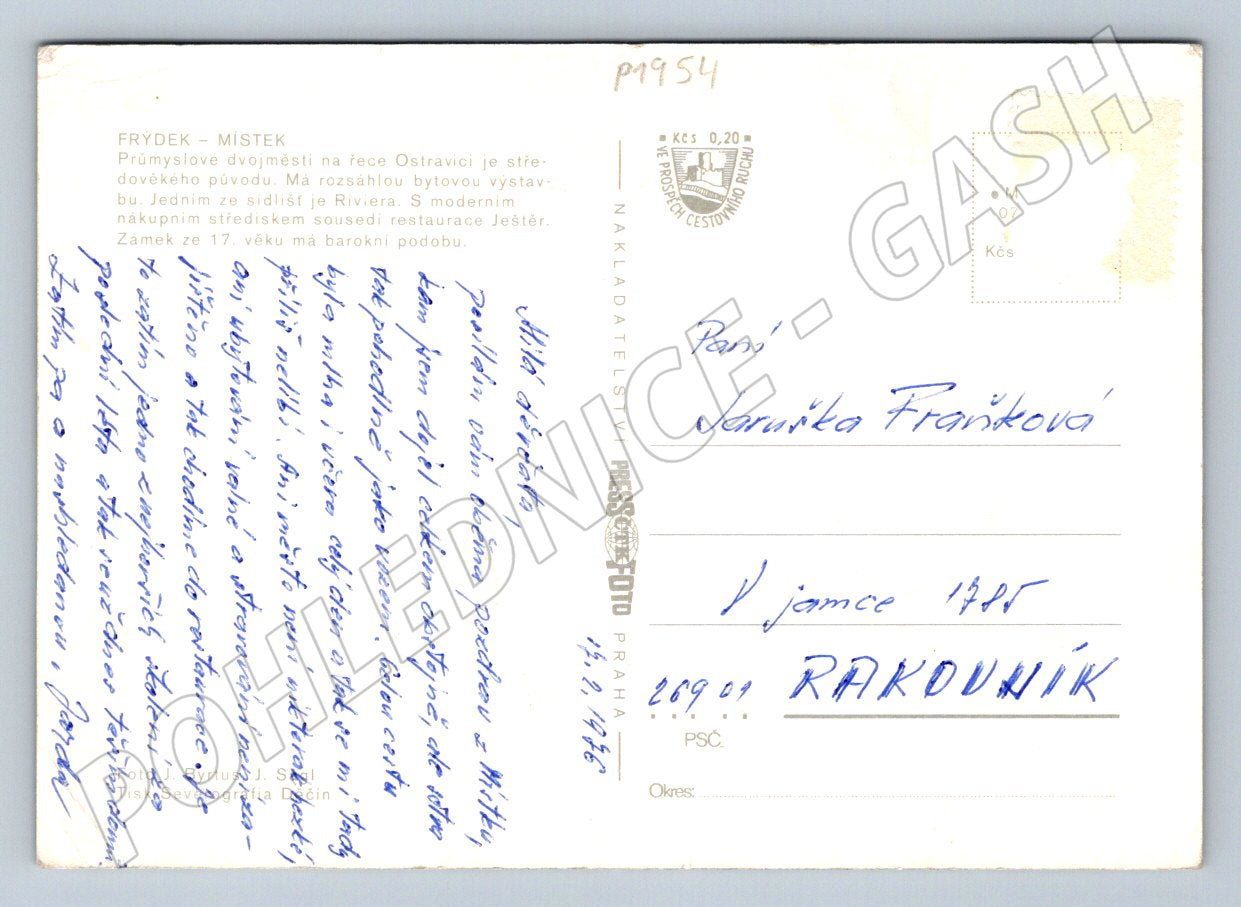 p1954
FRÝDEK – MÍSTEK
Průmyslové dvojměstí na řece Ostravici je stře-
dověkého původu. Má rozsáhlou bytovou výstav-
bu. Jedním ze sídlišť je Riviera. S moderním
nákupním střediskem sousedí restaurace Ještěr.
Zámek ze 17. věku má barokní podobu.
Milá děvčata,
posílám vám oběma pozdrav z Místku,
kam jsem dojel celkem obstojně, ale
tak pohodlně jako vozem. Celou cestu
byla mlha i včera celý den a tak se mi tady
příliš nelíbí. Ani město není nikterak hezké,
ani ubytování valné a stravování není za-
jištěno a tak chodíme do restaurace. Je
to zatím jedno z nejhorších školení za
poslední léta a tak se už dnes těším domů.
Zatím pa a nashledanou, Jarda
Foto J. Byrtus, J. Sägl
Tisk Severografia Děčín
NAKLADATELSTVÍ PRESSFOTO PRAHA
ČTK
Kčs 0,20
VE PROSPĚCH CESTOVNÍHO RUCHU
M
07
Kčs
Paní
Jaruška Fraňková
V jamce 1785
269 01 RAKOVNÍK
PSČ
Okres:
POHLEDNICE - GASH